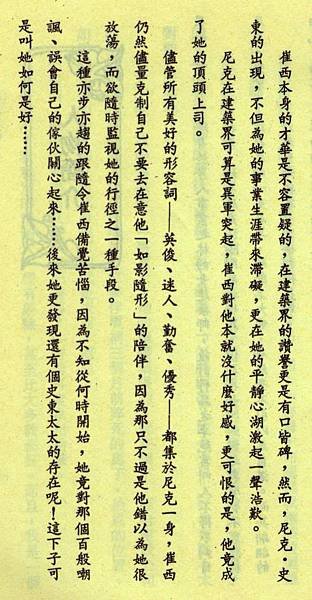 崔西本身的才華是不容置疑的，在建築界的讚譽更是有口皆碑，然而，尼克·史
東的出現，不但為她的事業生涯帶來滯礙，更在她的平靜心湖激起一聲浩歎。
尼克在建築界可算是異軍突起，崔西對他本就沒什麼好感，更可恨的是，他竟成
了她的頂頭上司。
儘管所有美好的形容詞——英俊、迷人、勤奮、優秀——都集於尼克一身，崔西
仍然儘量克制自己不要去在意他「如影隨形」的陪伴，因為那只不過是他錯以為她很
放蕩，而欲隨時監視她的行徑之一種手段。
這種亦步亦趨的跟隨令崔西備覺苦惱，因為不知從何時開始，她竟對那個百般嘲
諷、誤會自己的傢伙關心起來……後來她更發現還有個史東太太的存在呢！這下子可
是叫她如何是好……